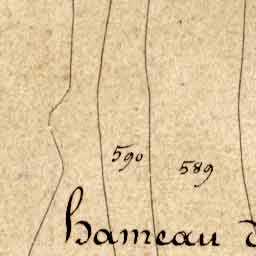 590
589
hameau d